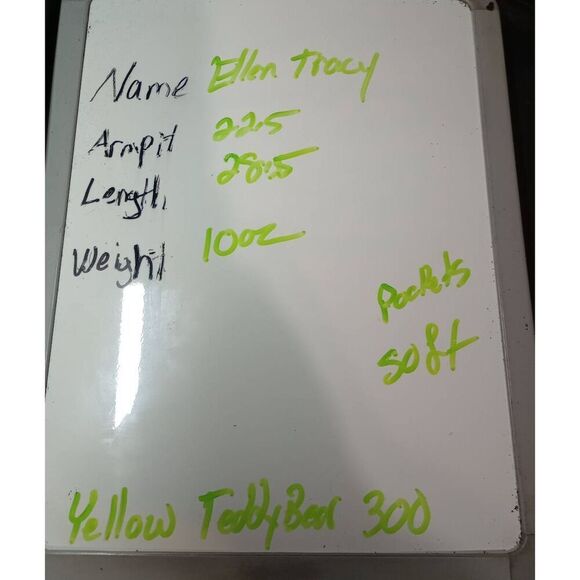 Name Ellen Tracy
Armpit 22.5
Length 28.5
Weight 10oz
Pockets
soft
Yellow TeddyBear 300